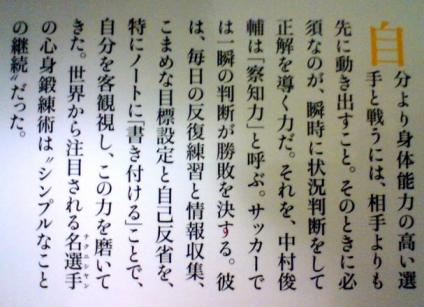 自分より身体能力の高い選
手と戦うには、相手よりも
先に動き出すこと。そのときに必
須なのが、瞬時に状況判断をして
正解を導く力だ。それを、中村俊
輔は「察知力」と呼ぶ。サッカーで
は一瞬の判断が勝敗を決する。彼
は、毎日の反復練習と情報収集、
こまめな目標設定と自己反省を、
特にノートに「書き付ける」ことで、
自分を客観視し、この力を磨いて
きた。世界から注目される名選手
テクニシャン
の心身鍛練術は〝シンプルなこと
の継続〟だった。